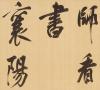 師看
書
襄陽